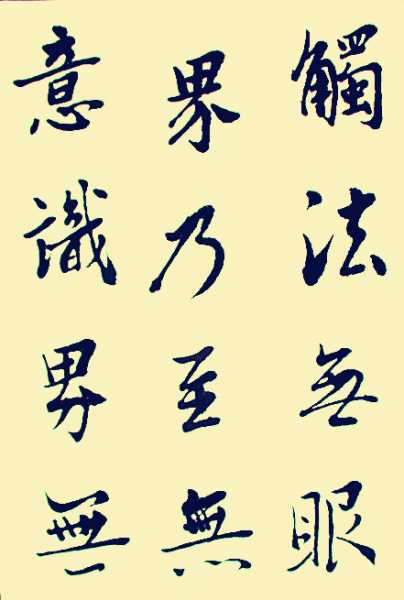 觸法無眼
界乃至無
意識界無